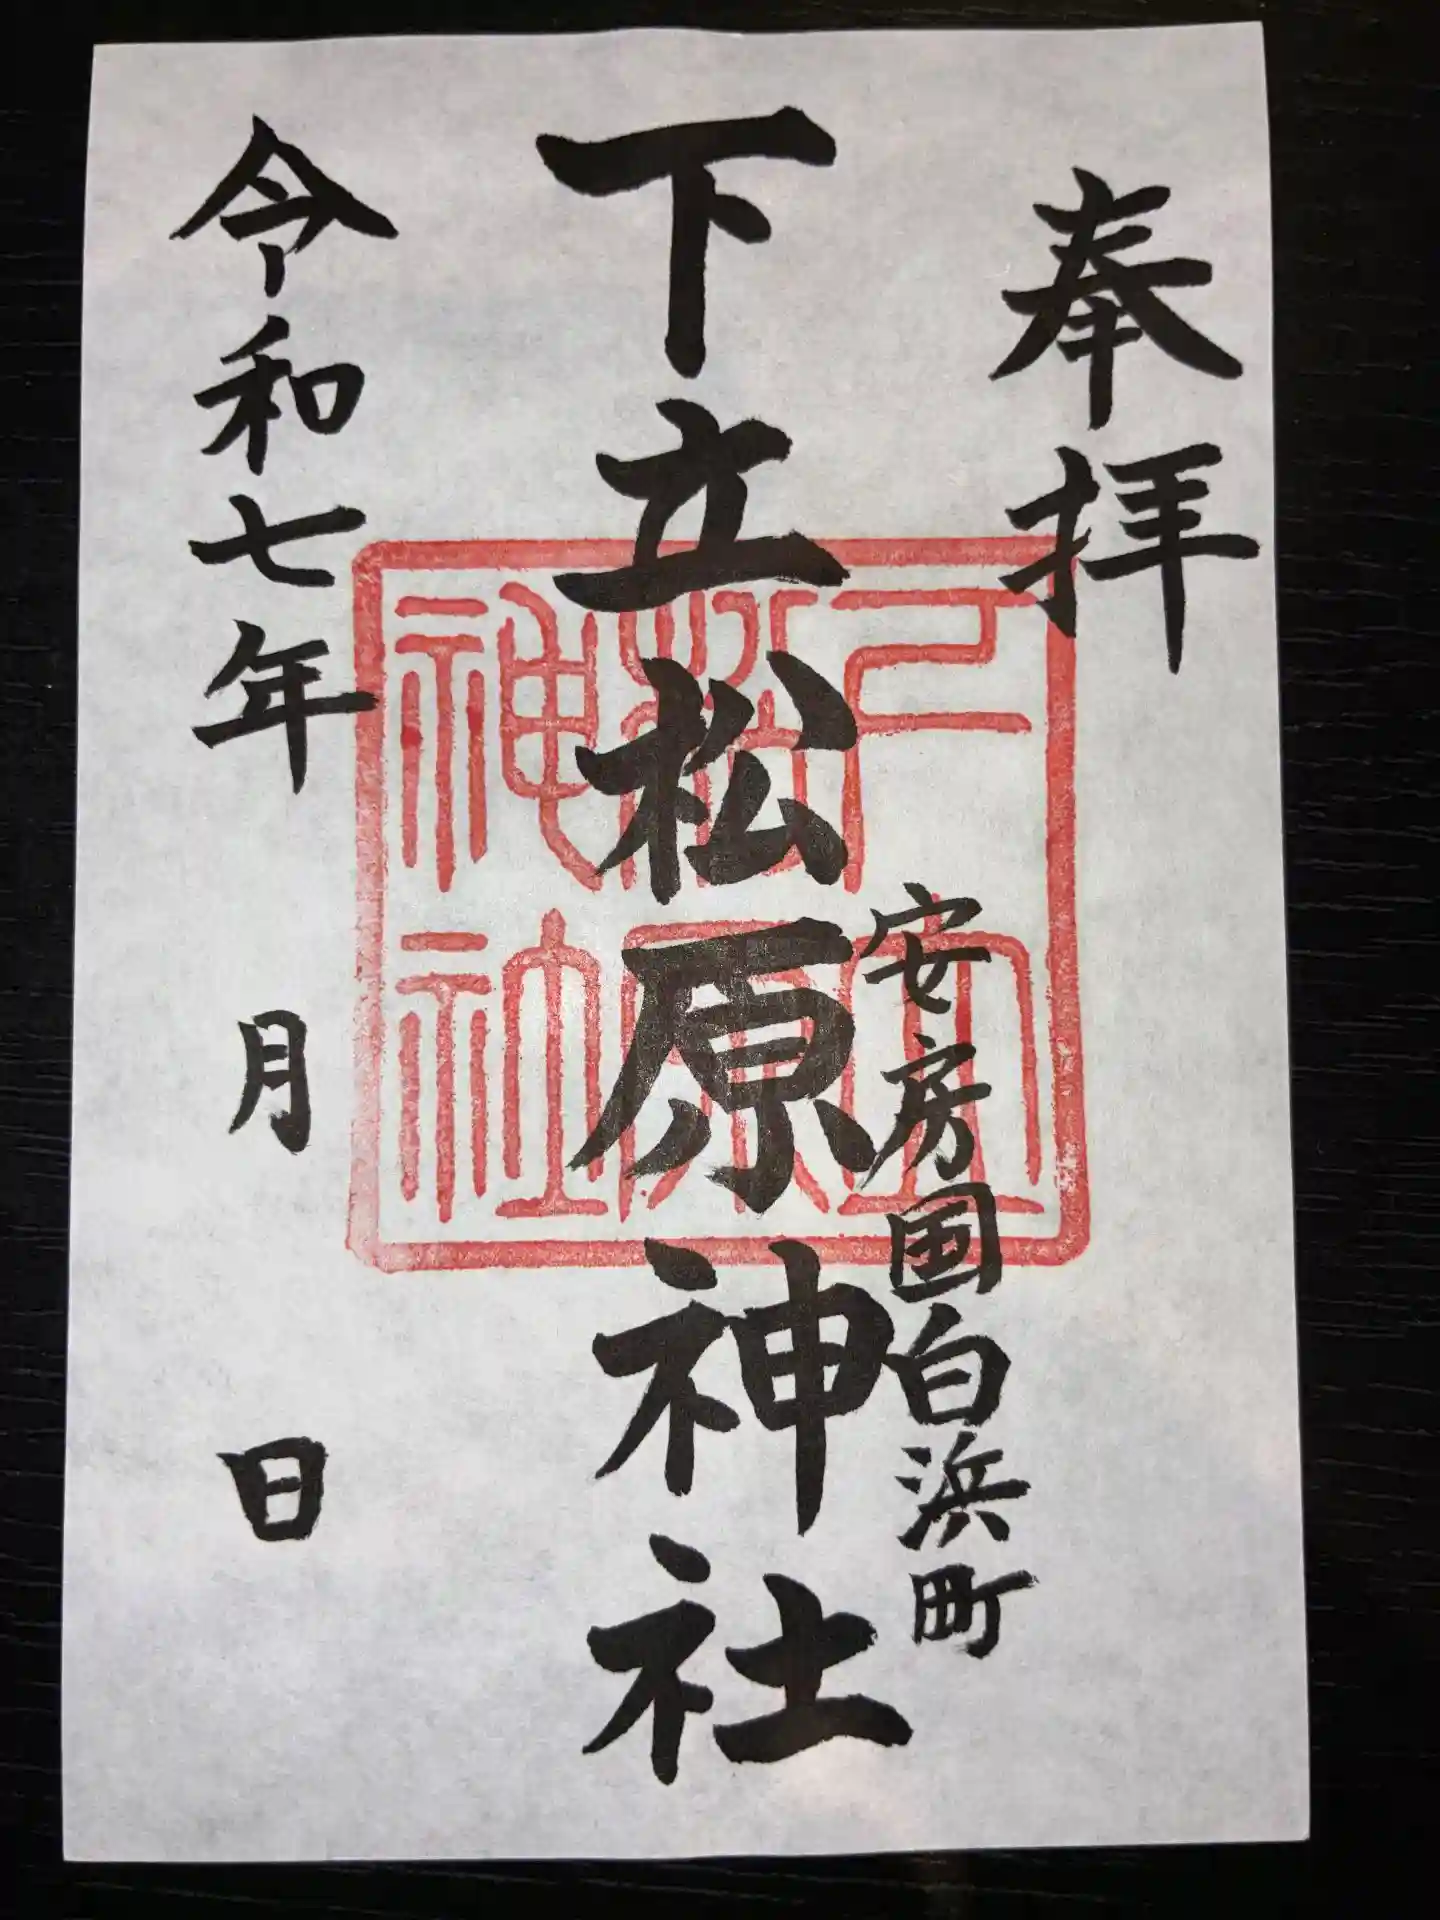 奉拝
安房国白浜町
下立松原神社
令和七年 月 日
下立
松原
神社